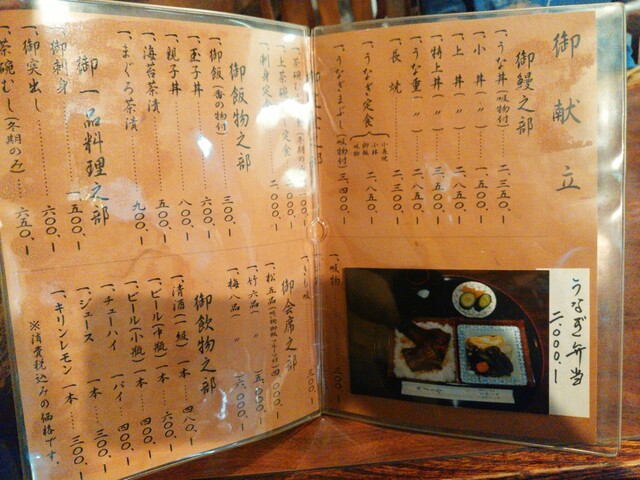 御献立
御鰻之部
一、うな丼(吸物付) 二、三五〇、ー
一、小丼(〃) 一、五〇〇、ー
一、上丼(〃) 二、八五〇、ー
一、特上丼(〃)
一、うな重(〃)
一、長焼 二、三〇〇、ー
一、うなぎ定食 小長焼 小鉢 御飯 吸物 二、八五〇、ー
一、うなぎまぶし(吸物付) 三、四〇〇、ー
一、吸物 三〇〇、ー
うなぎ弁当
二、〇〇〇、ー
一、刺身定食 二、〇〇〇、ー
御飯物之部
一、御飯(香の物付) 三〇〇、ー
一、玉子丼 六〇〇、ー
一、親子丼 八〇〇、ー
一、海苔茶漬 五〇〇、ー
一、まぐろ茶漬 九〇〇、ー
御一品料理之部
一、御刺身 一、五〇〇、ー
一、御突出し 六〇〇、ー
一、茶碗むし(冬期のみ) 六五〇、ー
一、きも吸 三〇〇、ー
御会席之部
一、松五品
一、竹六品(〃) 五、〇〇〇、ー
一、梅八品(〃) 六、〇〇〇、ー
御飲物之部
一、清酒(一級) 一本 四八〇、ー
一、ビール(中瓶) 一本 六〇〇、ー
一、ビール(小瓶) 一本 四〇〇、ー
一、チューハイ 一パイ 四〇〇、ー
一、ジュース 一本 三〇〇、ー
一、キリンレモン 一本 三〇〇、ー
※消費税込みの価格です。